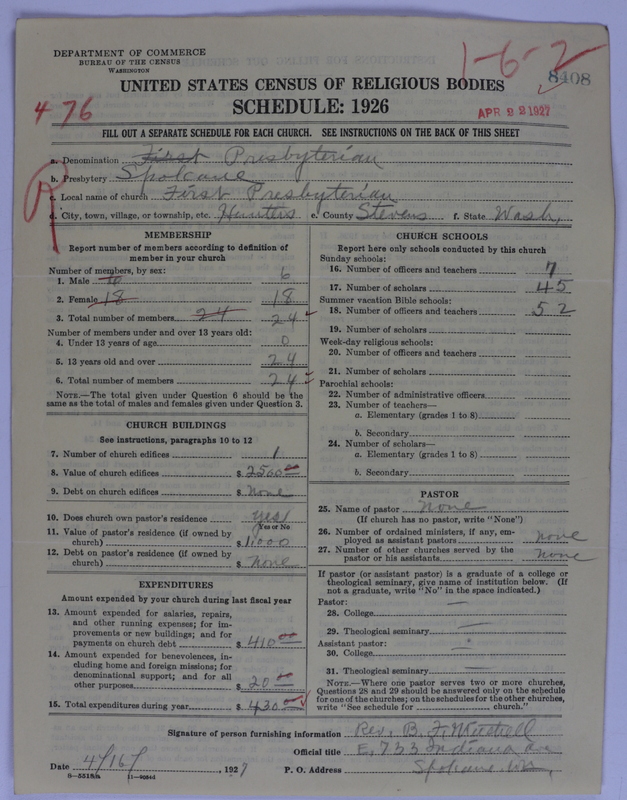 DEPARTMENT OF COMMERCE
BUREAU OF THE CENSUS
WASHINGTON
1-6-2
8408
UNITED STATES CENSUS OF RELIGIOUS BODIES
SCHEDULE: 1926
4 76
APR 22 1927
FILL OUT A SEPARATE SCHEDULE FOR EACH CHURCH. SEE INSTRUCTIONS ON THE BACK OF THIS SHEET
R
a. Denomination First Presbyterian
b. Presbytery Spokane
c. Local name of church First Presbyterian
d. City, town, village, or township, etc. Hunters e. County Stevens f. State Wash.
MEMBERSHIP
Report number of members according to definition of
member in your church
Number of members, by sex:
1. Male 6
2. Female 18 18
3. Total number of members 24 24
Number of members under and over 13 years old:
4. Under 13 years of age 0
5. 13 years old and over 24
6. Total number of members 24
NOTE.—The total given under Question 6 should be
same as the total of males and females given under Question 3.
CHURCH BUILDINGS
See instructions, paragraphs 10 to 12
7. Number of church edifices 1
8. Value of church edifices $ 2500 00
9. Debt on church edifices $ None
10. Does church own pastor's residence yes
Yes or No
11. Value of pastor's residence (if owned by
church) $ 1000
12. Debt on pastor's residence (if owned by
church) $ None
EXPENDITURES
Amount expended by your church during last fiscal year
13. Amount expended for salaries, repairs,
and other running expenses; for im-
provements or new buildings; and for
payments on church debt $ 410 00
14. Amount expended for benevolences, in-
cluding home and foreign missions; for
denominational support; and for all
other purposes $ 20 00
15. Total expenditures during year $ 430 00
CHURCH SCHOOLS
Report here only schools conducted by this church
Sunday schools:
16. Number of officers and teachers 7
17. Number of scholars 45
Summer vacation Bible schools:
18. Number of officers and teachers 52
19. Number of scholars
Week-day religious schools:
20. Number of officers and teachers
21. Number of scholars
Parochial schools:
22. Number of administrative officers
23. Number of teachers—
a. Elementary (grades 1 to 8)
b. Secondary
24. Number of scholars—
a. Elementary (grades 1 to 8)
b. Secondary
PASTOR
25. Name of pastor None
(If church has no pastor, write "None")
26. Number of ordained ministers, if any, em-
ployed as assistant pastors none
27. Number of other churches served by the
pastor or his assistants none
If pastor (or assistant pastor) is a graduate of a college or
theological seminary, give name of institution below. (If
not a graduate, write "No" in the space indicated.)
Pastor:
28. College
29. Theological seminary
Assistant pastor:
30. College
31. Theological seminary
NOTE.—Where one pastor serves two or more churches,
Questions 28 and 29 should be answered only on the schedule
for one of the churches; on the schedules for the other churches,
write "See schedule for church."
Signature of person furnishing information Rev. B. F.
Official title E. 733 Indiana Ave
Date 4/16/, 1927 P. O. Address Spokane, Wn.
8—5518/a